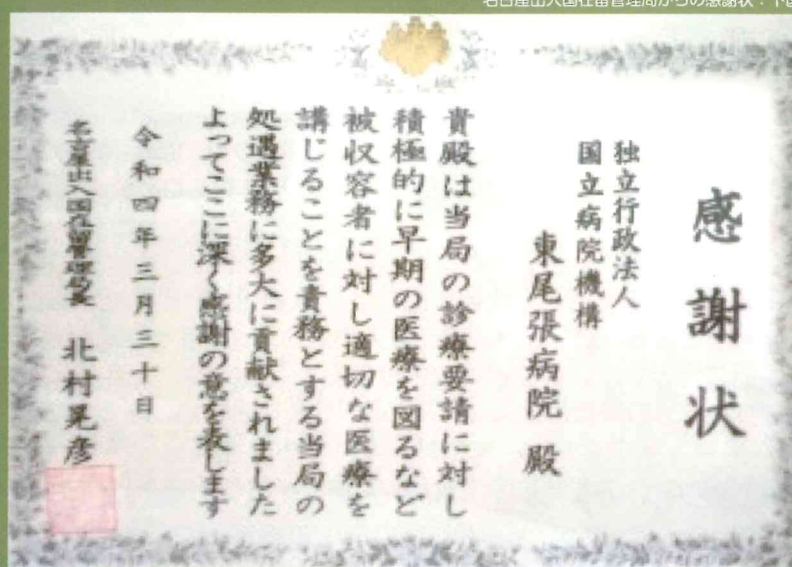 名古屋出入国在留管理局からの感謝状：下
感謝状
独立行政法人
国立病院機構
東尾張病院 殿
貴殿は当局の診療要請に対し
積極的に早期の医療を図るなど
被収容者に対し適切な医療を
講じることを責務とする当局の
処遇業務に多大に貢献されました
よってここに深く感謝の意を表します
令和四年三月三十日
名古屋出入国在留管理局長 北村晃彦